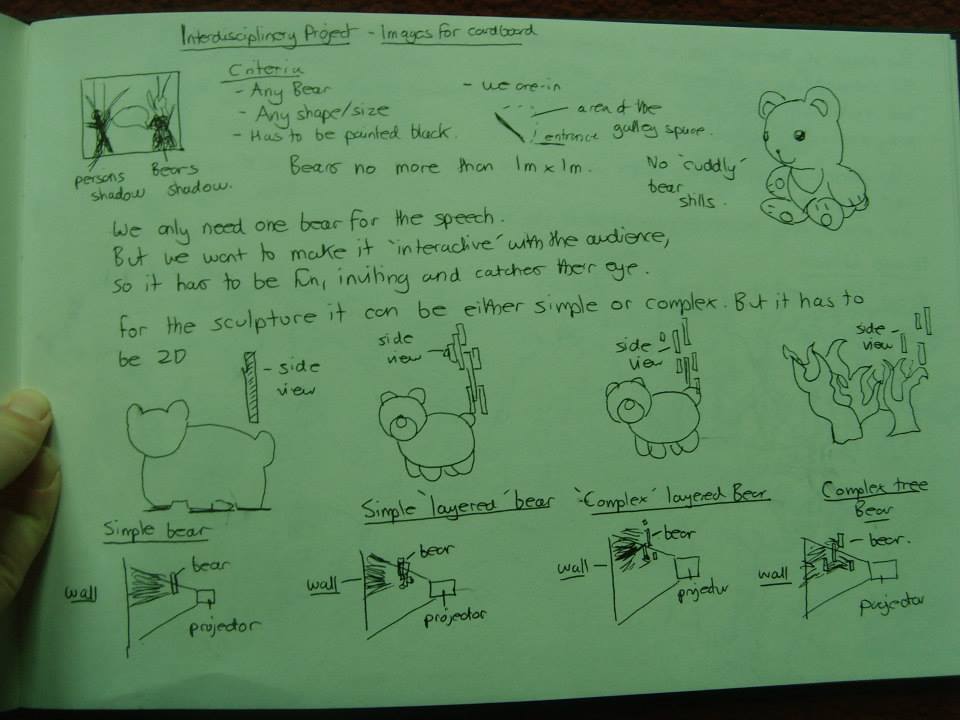 Interdisciplinary Project - Images for cardboard
Criteria
- Any Bear
- Any shape/size
- Has to be painted black.
- we are in
area of the
gallery space.
entrance
persons
shadow
Bears
shadow.
Bears no more than 1m x 1m.
No 'cuddly'
bear
stills.
We only need one bear for the speech.
But we want to make it 'interactive' with the audience,
so it has to be fun, inviting and catches their eye.
For the sculpture it can be either simple or complex. But it has to
be 2D
- side
view
side
view
side -
view
side -
view
Simple bear
Simple 'layered' bear
'Complex' layered Bear
Complex tree
Bear
wall
bear
projector
wall -
bear
projector
wall -
bear
projector
wall
- bear.
projector